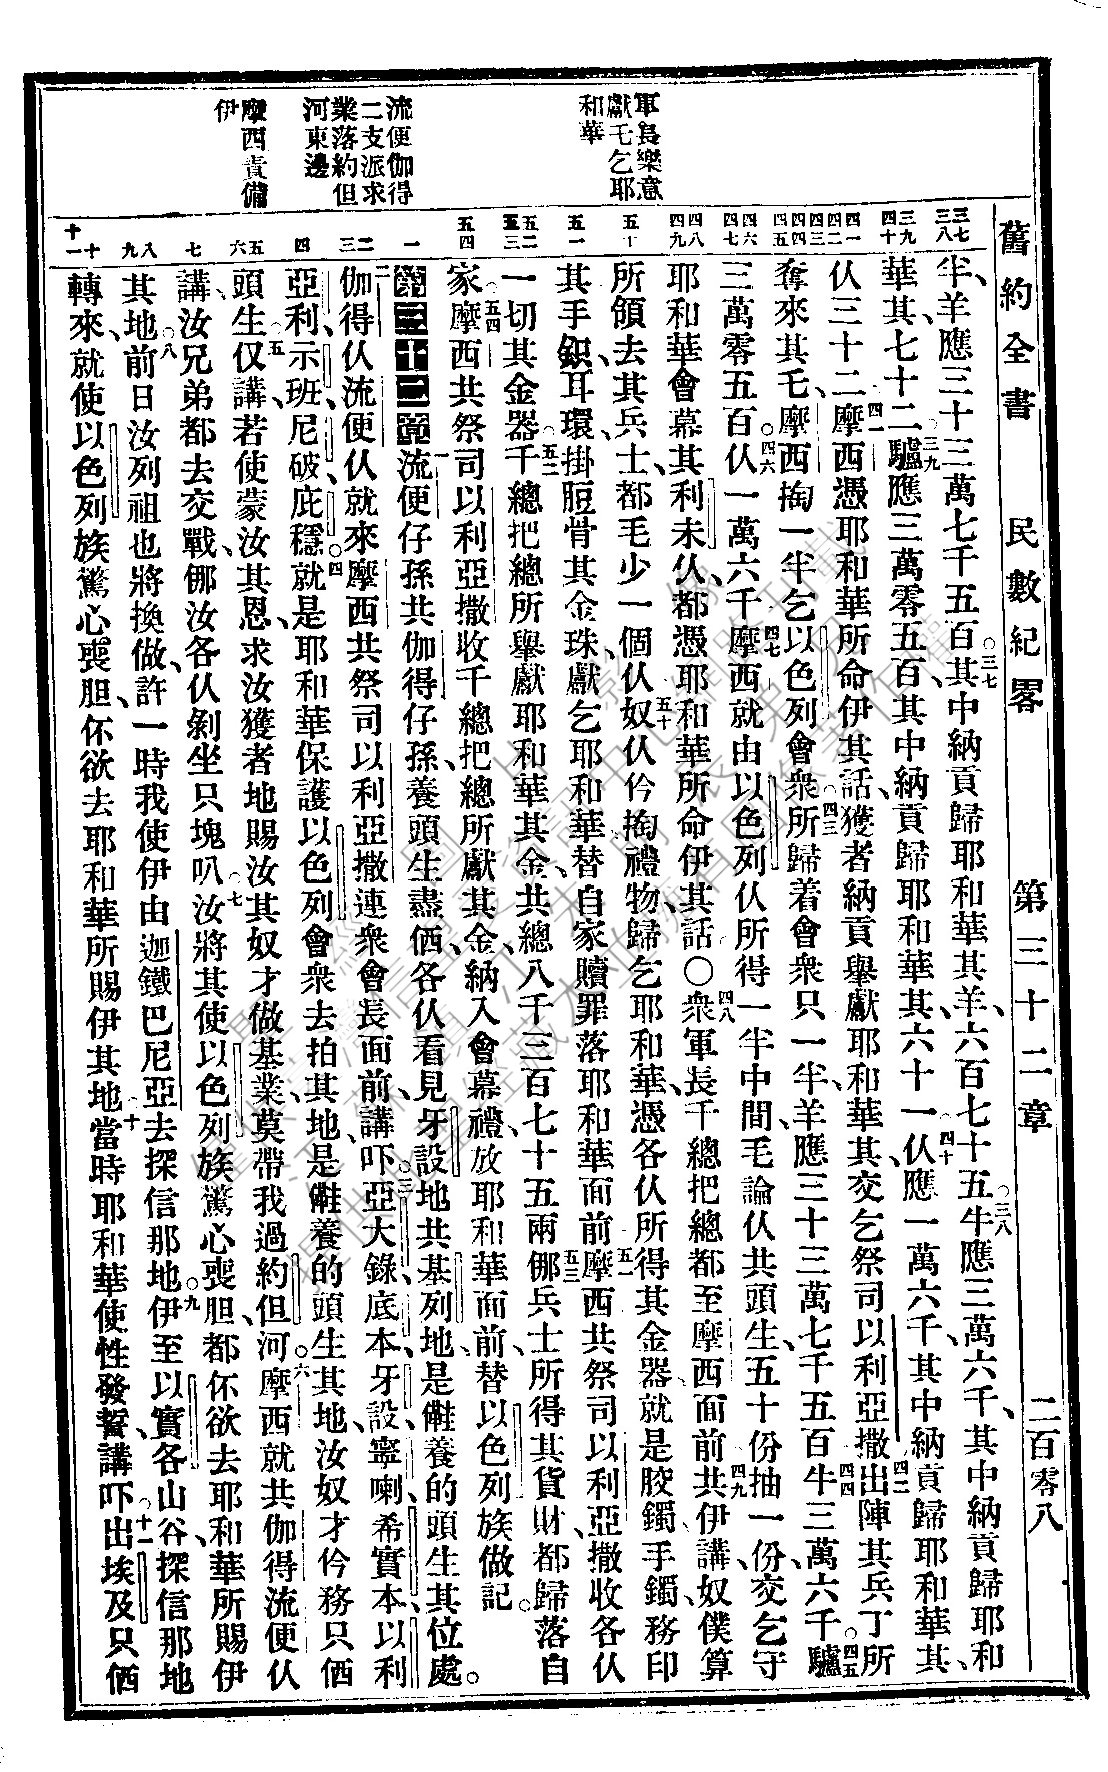 舊約全書 民數紀畧 第三十二章 二百零八
軍長樂意
獻乇乞耶
和華
流便伽得
二支派求
業落約但
河東邊
摩西責備
伊
三七 三八 三九 四十 四一 四二 四三 四四 四五 四六 四七 四八 四九 五十 五一 五二 五三 五四 一 二 三 四 五 六 七 八 九 十 十一
半、羊應三十三萬七千五百。三七其中納貢歸耶和華其、羊、六百七十五。三八牛應三萬六千、其中納貢歸耶和
華其、七十二。三九驢應三萬零五百、其中納貢歸耶和華其、六十一。四十仈應一萬六千、其中納貢歸耶和華其、
仈三十二。四一摩西憑耶和華所命伊其話、獲者納貢舉獻耶和華其、交乞祭司以利亞撒。四二出陣其兵丁所
奪來其乇、摩西掏一半乞以色列會衆。四三所歸着會衆只一半、羊應三十三萬七千五百、四四牛三萬六千、四五驢
三萬零五百。四六仈一萬六千、四七摩西就由以色列仈所得一半中間、毛論仈共頭生、五十份抽一份、交乞守
耶和華會幕其利未仈、都憑耶和華所命伊其話○四八衆軍長千總把總都至摩西面前、四九共伊講、奴僕算
所領去其兵士、都毛少一個仈、五十奴仈仱掏禮物、歸乞耶和華、憑各仈所得其金器、就是胶鐲、手鐲、務印
其手鈬、耳環、掛脰骨其金珠、獻乞耶和華、替自家贖罪落耶和華面前。五一摩西共祭司以利亞撒收各仈
一切其金器。五二千總把總所舉獻耶和華其金、共總八千三百七十五兩。五三㑚兵士所得其貨財、都歸落自
家。五四摩西共祭司以利亞撒收千總把總所獻其金、納入會幕禮、放耶和華面前、替以色列族做記。
第三十二章 一流便仔孫共伽得仔孫、養頭生盡価、各仈看見牙設地共基列地、是㒓養的頭生其位處。
二伽得仈流便仈就來摩西共祭司以利亞撒連衆會長面前、講吓、三亞大錄、底本、牙設、寧喇、希實本、以利
亞利、示班、尼破、庇穩。四就是耶和華保護以色列會衆去拍其地、是㒓養的頭生其地、汝奴才仱務只価
頭生。五仅講、若使蒙汝其恩、求汝獲者地賜汝其奴才做基業、莫帶我過約但河。六摩西就共伽得流便仈
講、汝兄弟都去交戰、㑚汝各仈剝坐只塊叭。七汝將其使以色列族驚心喪胆、都伓欲去耶和華所賜伊
其地。八前日汝列祖也將換做、許一時我使伊由迦鐵巴尼亞去探信那地。九伊至以實各山谷、探信那地
轉來、就使以色列族驚心喪胆、伓欲去耶和華所賜伊其地。十當時耶和華使性發誓、講吓、十一出埃及只価